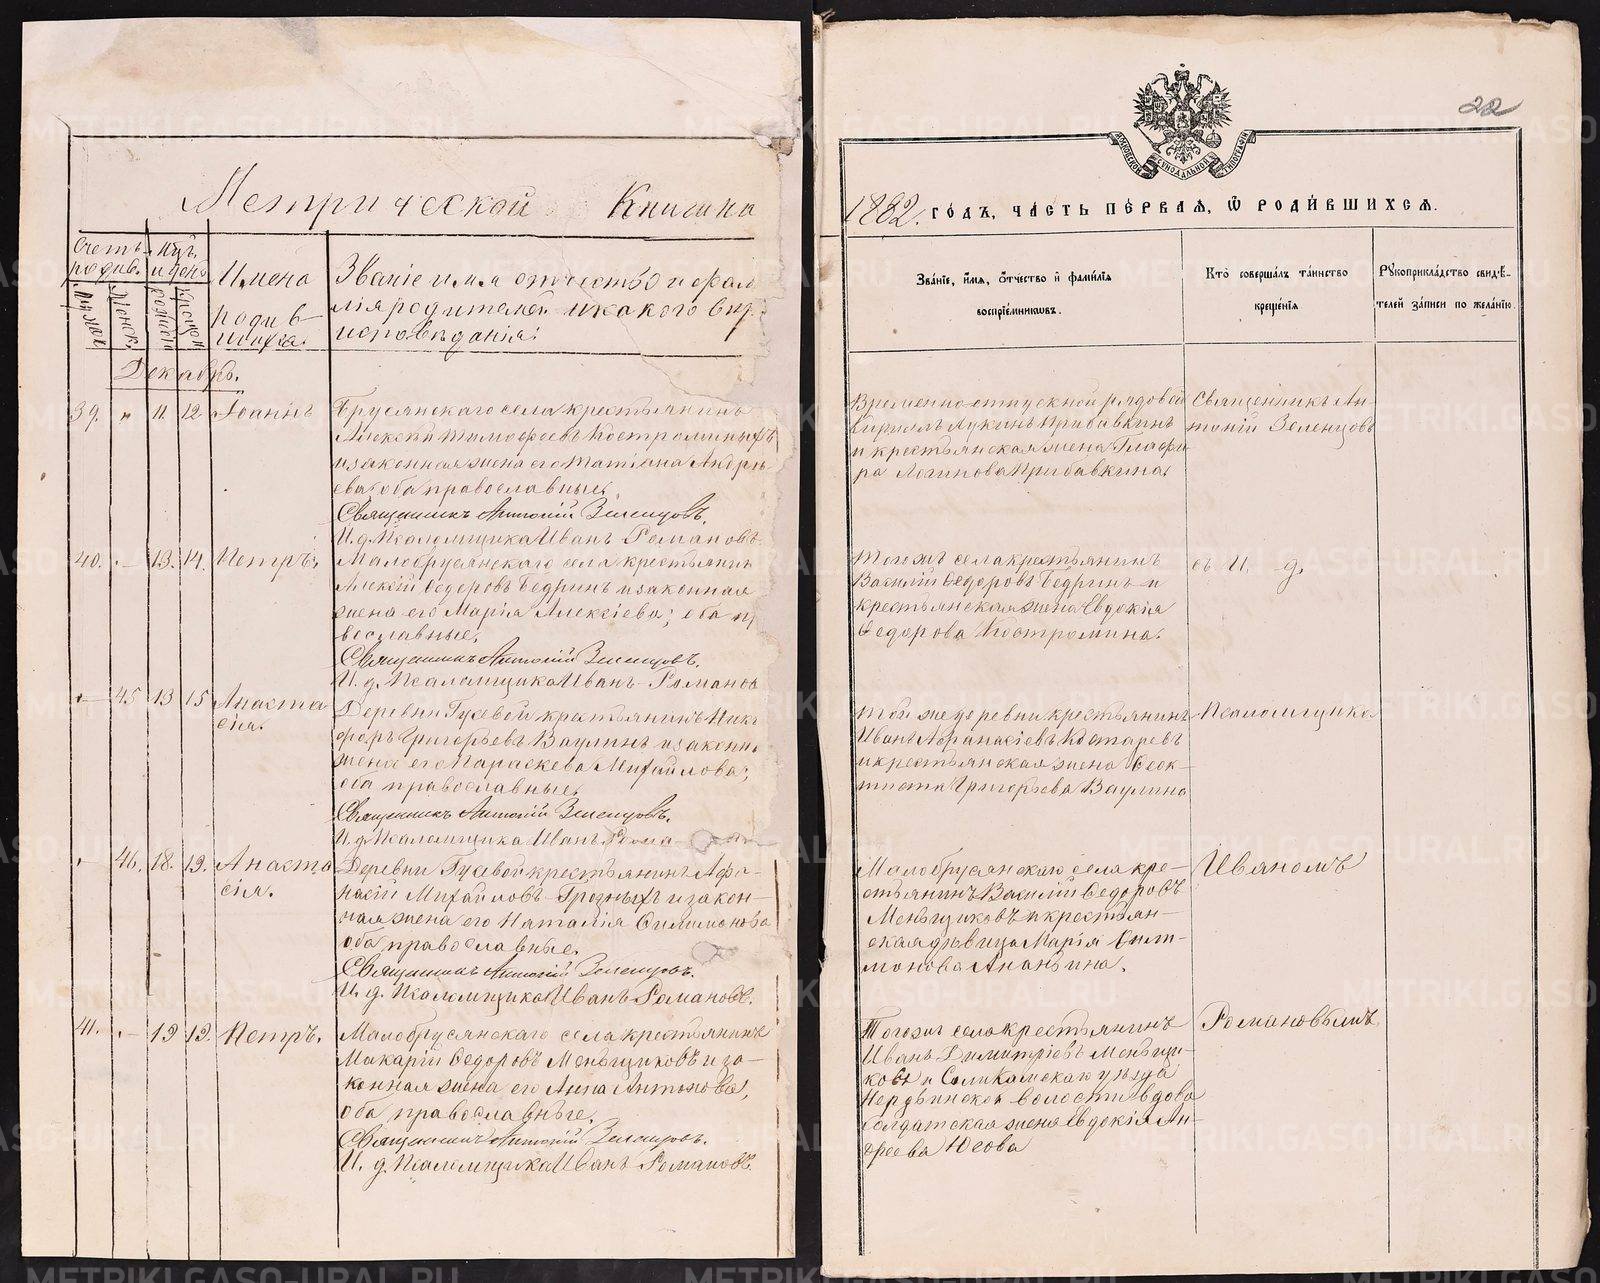 Метрической Книги на
Счетъ родив.
Мца и день
Имена родив-
шихся.
Званіе имя отчество и фами
лія родителей и какого вѣр.
исповѣданія:
Муж.
Женск.
рожден.
крещен.
Декабрь.
39. " 11. 12. Іоаннъ
Брусянскаго села крестьянинъ
Алексѣй Тимофеевъ Костроминыхъ
и законная жена его Татіана Андрѣ-
ева; оба православные.
Священникъ Антоній Зеленцовъ.
И. д. Псаломщика Иванъ Романовъ.
40. - 13. 14. Петръ.
Малобрусянскаго села крестьянин
Алексій Ѳедоровъ Бедринъ и законная
жена его Марія Алексіева; оба пр
вославные.
Священникъ Антоній Зеленцовъ.
И. д. Псаломщика Иванъ Романов
- 45 13 15 Анаста
сія.
Деревни Гусевой крестьянинъ Ник
форъ Григорьевъ Ваулинъ и законн
жена его Параскева Михайлова;
оба православные.
Священникъ Антоній Зеленцовъ.
И. д. Псаломщика Иванъ Рома
- 46. 18. 19. Анаста
сія.
Деревни Гусевой крестьянинъ Афа-
насій Михайловъ Грозныхъ и закон-
ная жена его Наталія Филимонова
оба православные.
Священникъ Антоній Зеленцовъ.
И. д. Псаломщика Иванъ Романовъ.
41. - 19 19. Петръ.
Малобрусянскаго села крестьянинъ
Макарій Ѳедоровъ Меньщиковъ и за-
конная жена его Анна Антонова,
оба православные.
Священникъ Антоній Зеленцовъ.
И. д. Псаломщика Иванъ Романовъ.
22
МОСКОВСКОЙ СѴНОДАЛЬНОЙ ТИПОГРАФІИ
1882. ГОДЪ, ЧАСТЬ ПЕРВАЯ, Ѡ РОДИВШИХСЯ.
Званіе, имя, отчество и фамилія
воспріемниковъ.
Кто совершалъ таинство
крещенія
Рукоприкладство свидѣ-
телей записи по желанію.
Временно-отпускной рядовой
Кириллъ Лукинъ Прибавкинъ
и крестьянская жена Глафи
ра Логинова Прибавкина.
Священникъ Ан-
тоній Зеленцовъ
Тогожъ села крестьянинъ
Василій Ѳедоровъ Бедринъ и
крестьянская жена Евдокія
Ѳедорова Костромина.
съ И. д.
Той же деревни крестьянинъ
Иванъ Афанасіевъ Костаревъ
и крестьянская жена Ѳеок-
тиста Григорьева Ваулина
Псаломщика
Малобрусянскаго села кре-
стьянинъ Василій Ѳедоровъ
Меньщиковъ и крестьян-
ская дѣвица Марія Фили-
монова Ананьина.
Иваномъ
Тогожъ села крестьянинъ
Иванъ Димитріевъ Меньщи-
ковъ и Соликамскаго уѣзда
Нердвинской волости вдова
солдатская жена Евдокія Ан-
дреева Югова
Романовымъ
METRIKI.GASO-URAL.RU